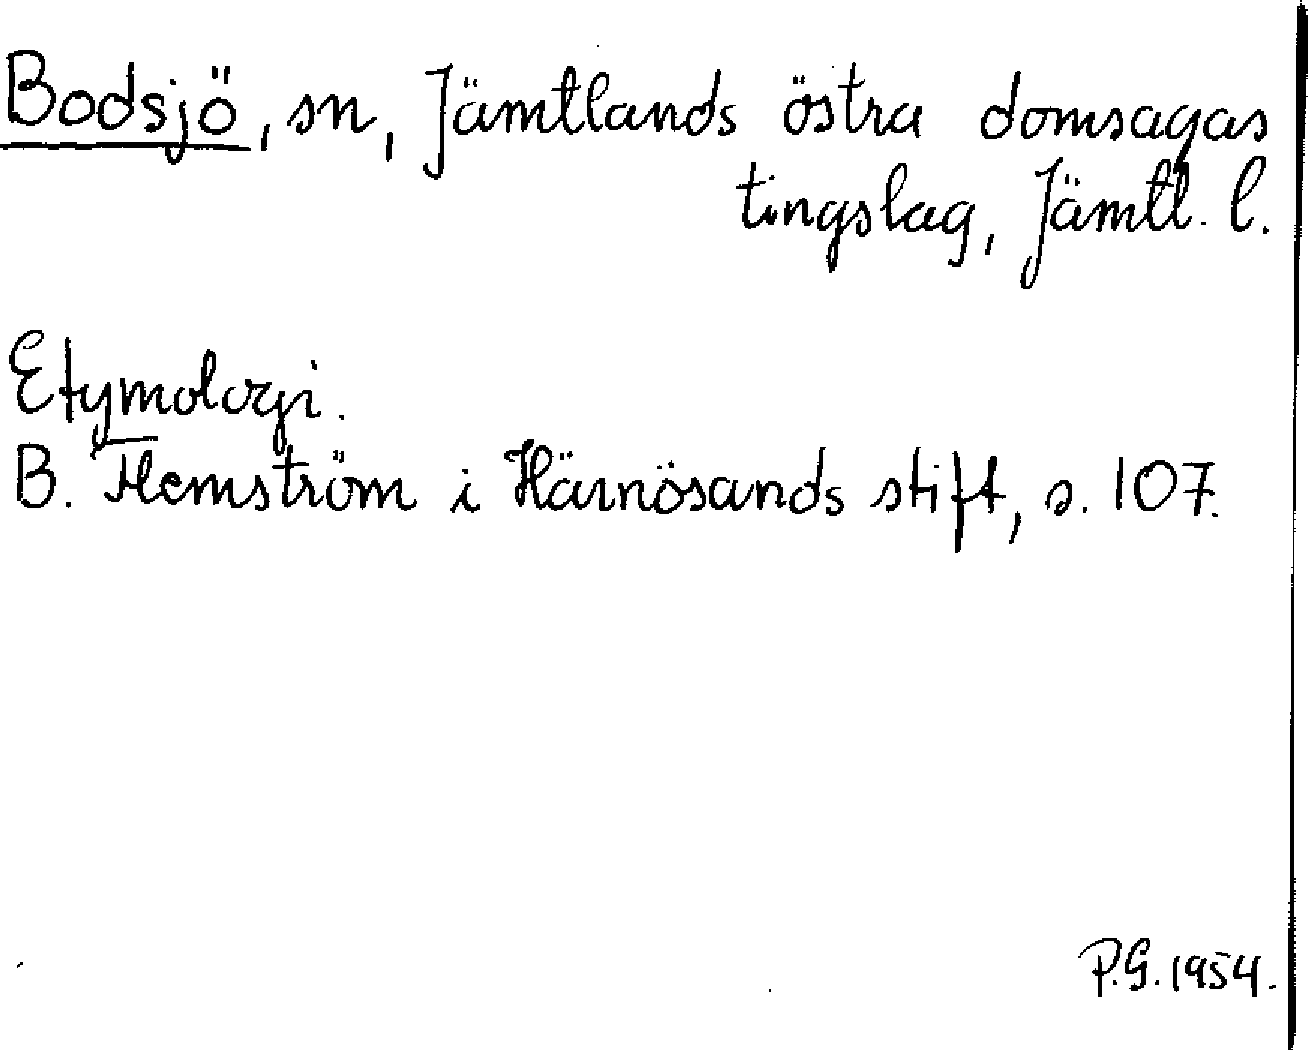 Bodsjö, sn, Jämtlands östra domsagas
tingslag, Jämtl. l.
Etymologi.
B. Flemström i Härnösands stift, s. 107.
P.G. 1954.